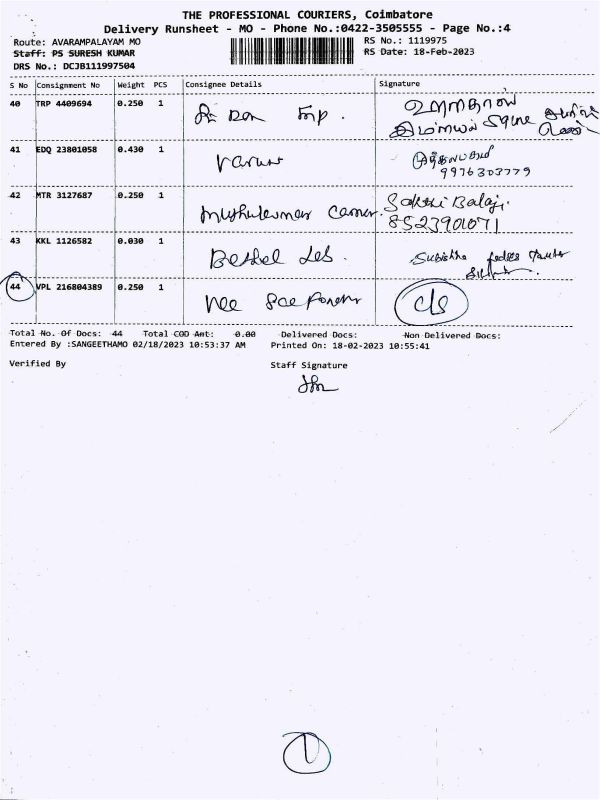 THE PROFESSIONAL COURIERS, Coimbatore
Delivery Runsheet - MO - Phone No.:0422-3505555 - Page No.:4
Route: AVARAMPALAYAM MO
RS No.: 1119975
Staff: PS SURESH KUMAR
RS Date: 18-Feb-2023
DRS No.: DCJB111997504
S No Consignment No Weight PCS Consignee Details Signature
40 TRP 4409694 0.250 1
41 EDQ 23801058 0.430 1 Varun
9976303779
42 MTR 3127687 0.250 1 Muthukumar Sakthi Balaji.
8523901071
43 KKL 1126582 0.030 1 Bethel
44 VPL 216804389 0.250 1 Vee c/s
Total No. Of Docs: 44 Total COD Amt: 0.00 Delivered Docs: Non Delivered Docs:
Entered By :SANGEETHAMO 02/18/2023 10:53:37 AM Printed On: 18-02-2023 10:55:41
Verified By Staff Signature
1